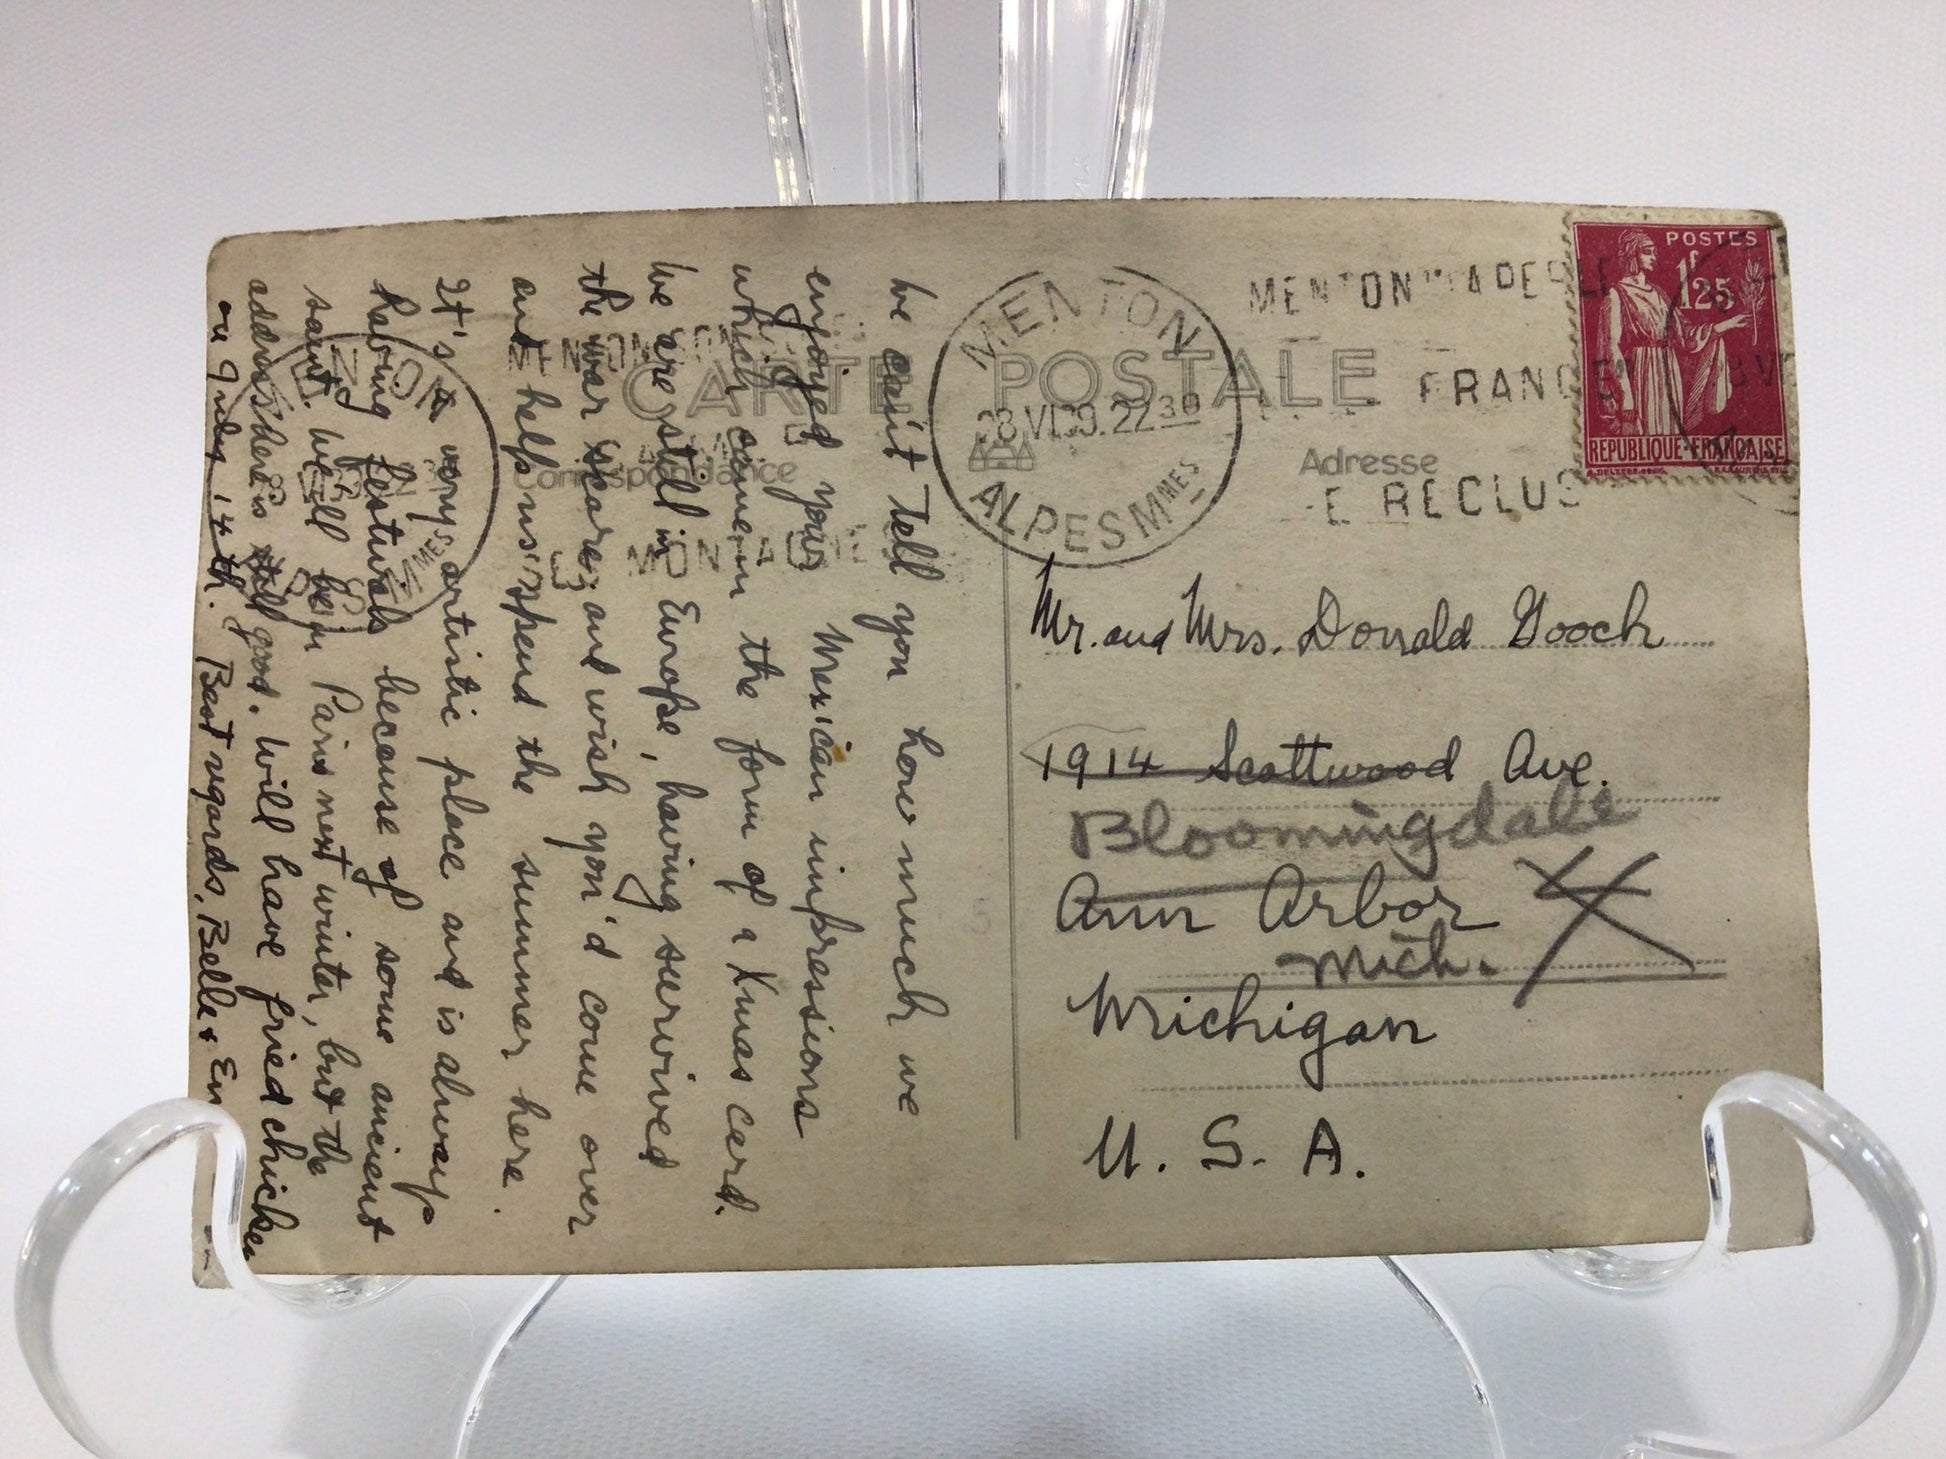 We can't tell you how much we
enjoyed your Mexican impressions
which came in the form of a Xmas card.
We are still in Europe, having survived
the war scares; and wish you'd come over
and help us spend the summer here.
It's a very artistic place and is always
having festivals because of some ancient
saint. We'll be in Paris next winter, but the
address here is still good. Will have fried chicken
on July 14th. Best regards, Belle &
CARTE POSTALE
Correspondance
Adresse
MENTON
28 VI 39. 22 30
ALPES MMES
MENTON
FRANCE
E RECLUS
POSTES
1f 25
REPUBLIQUE FRANÇAISE
Mr. and Mrs. Donald Gooch
1914 Scottwood Ave.
Bloomingdale
Ann Arbor
Mich.
Michigan
U. S. A.